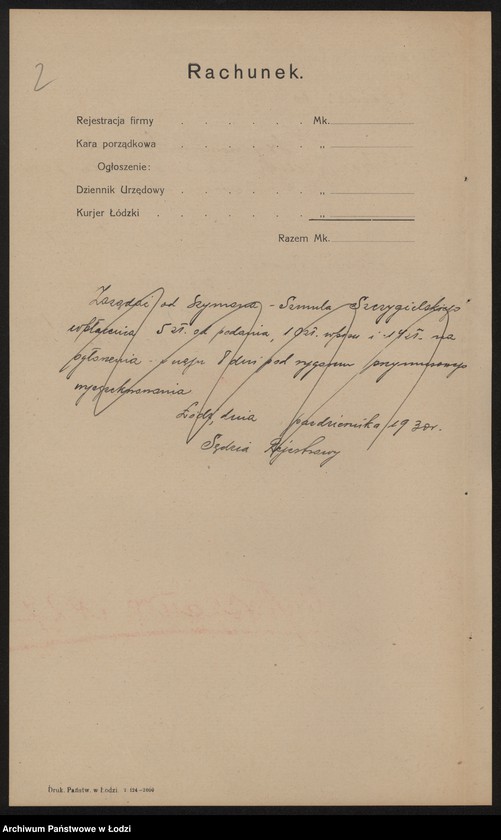 2
Rachunek.
Rejestracja firmy . . . . . . Mk.
Kara porządkowa . . . . . . „
Ogłoszenie:
Dziennik Urzędowy . . . . . . „
Kurjer Łódzki . . . . . . . „
Razem Mk.
Zażądać od Szymona - Szmula Szczygielskiego
wpłacenia 5 zł. od podania, 10 zł. wpisu i 14 zł. na
ogłoszenia - w ciągu 8 dni pod rygorem przymusowego
wyegzekwowania
Łódź, dnia października 1930 r.
Sędzia Rejestrowy
Druk. Państw. w Łodzi
Archiwum Państwowe w Łodzi